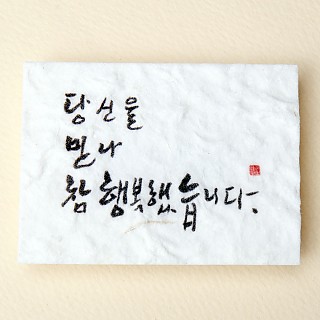 당신을
만나
참 행복했습니다.